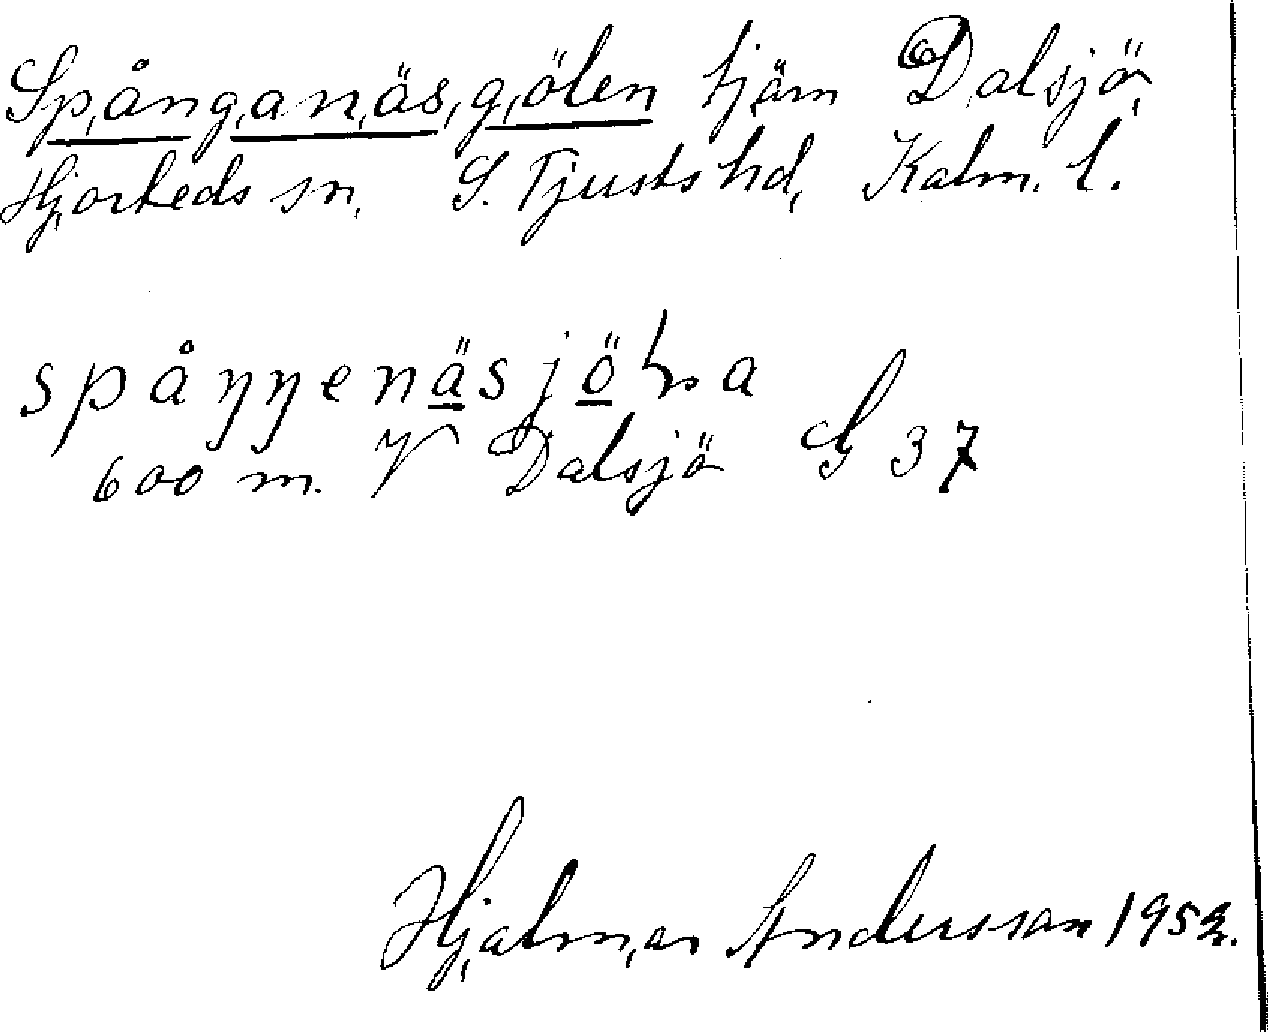 Spånganäsgölen tjärn Dalsjö,
Hjorteds sn, S. Tjusts hd, Kalm. l.
spåŋŋenäsjöln a
600 m. V Dalsjö G 37
Hjalmar Andersson 1952.